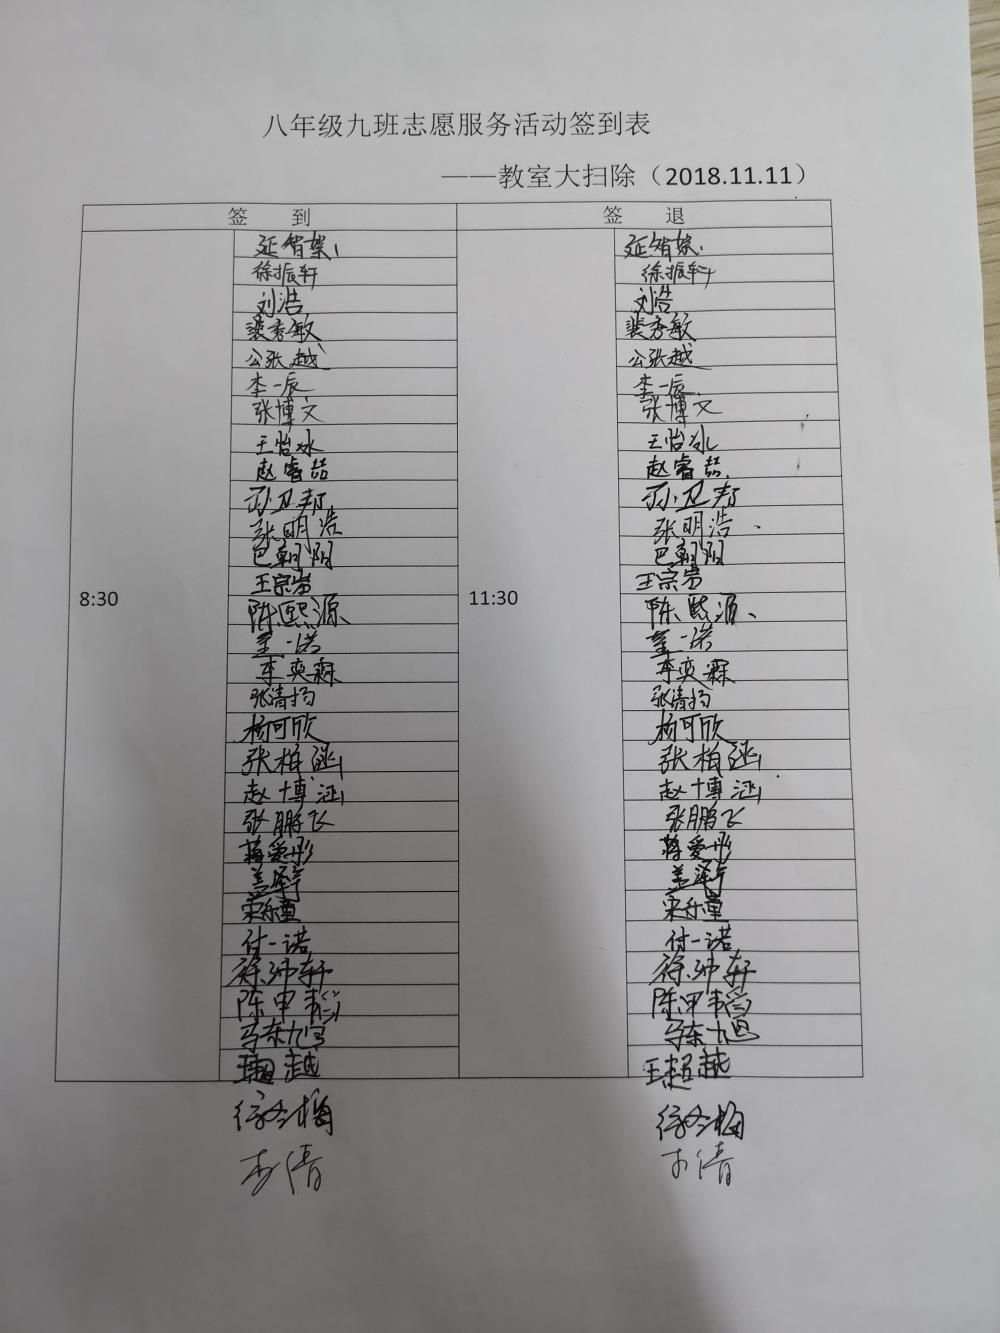 八年级九班志愿服务活动签到表
——教室大扫除（2018.11.11）
签 到 签 退
徐振轩 徐振轩
刘浩 刘浩
裴秀敏 裴秀敏
公张越 公张越
李一辰 李一辰
张博文 张博文
王怡冰 王怡冰
赵睿喆 赵睿喆
孙卫邦 孙卫邦
张明浩 张明浩
巴朝阳 巴朝阳
8:30 王宗岩 11:30 王宗岩
陈熙源 陈熙源
董一诺 董一诺
李奕霖 李奕霖
张清扬 张清扬
杨可欣 杨可欣
张柏涵 张柏涵
赵博涵 赵博涵
张鹏飞 张鹏飞
蒋爱彤 蒋爱彤
盖泽宇 盖泽宇
宋乐童 宋乐童
付一诺 付一诺
徐沛轩 徐沛轩
陈甲 陈甲
马东旭 马东旭
王超越 王超越
李倩 李倩